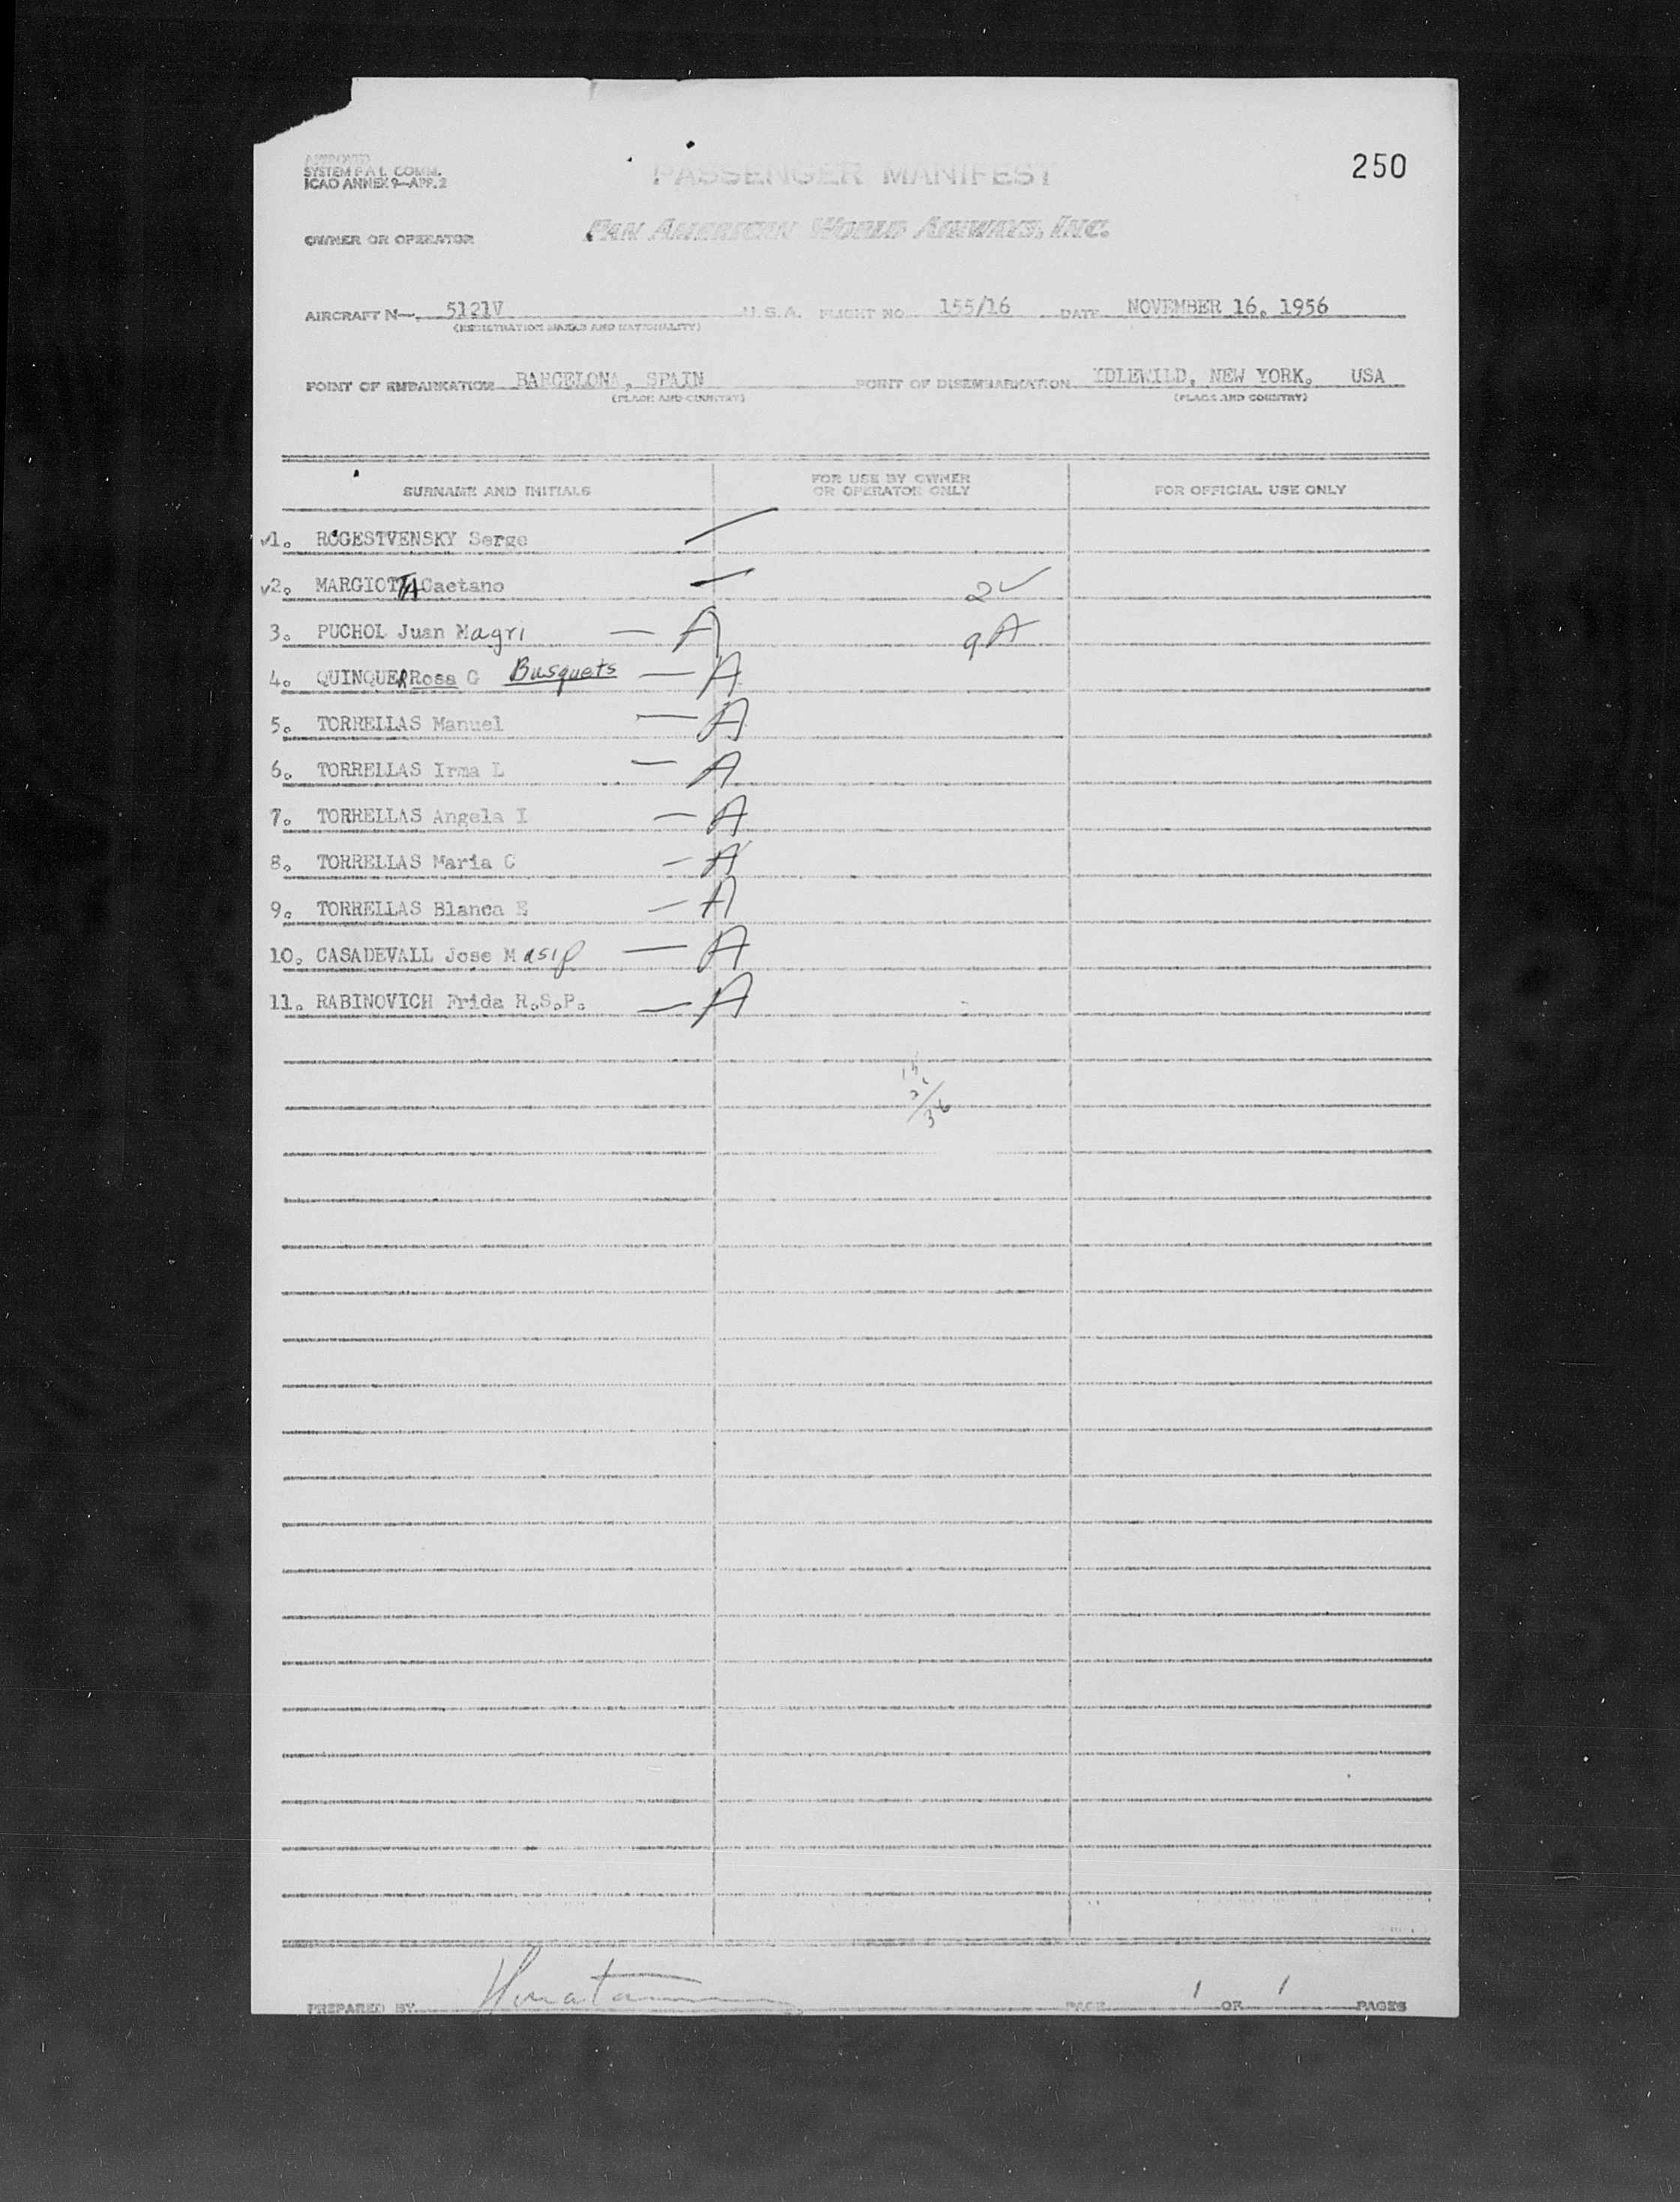 APPROVED
SYSTEM P.A.L. COMM.
ICAO ANNEX 9—APP. 2
PASSENGER MANIFEST
250
OWNER OR OPERATOR
PAN AMERICAN WORLD AIRWAYS, INC.
AIRCRAFT N— 5121V U.S.A. FLIGHT NO. 155/16 DATE NOVEMBER 16, 1956
(REGISTRATION MARKS AND NATIONALITY)
POINT OF EMBARKATION BARCELONA, SPAIN POINT OF DISEMBARKATION IDLEWILD, NEW YORK. USA
(PLACE AND COUNTRY) (PLACE AND COUNTRY)
SURNAME AND INITIALS
FOR USE BY OWNER
OR OPERATOR ONLY
FOR OFFICIAL USE ONLY
✓1. ROGESTVENSKY Serge —
✓2. MARGIOTTA Caetano — 2✓
3. PUCHOL Juan Magri — A 9A
4. QUINQUER Rosa G Busquets — A
5. TORRELLAS Manuel — A
6. TORRELLAS Irma L — A
7. TORRELLAS Angela I — A
8. TORRELLAS Maria C — A
9. TORRELLAS Blanca E — A
10. CASADEVALL Jose Masip — A
11. RABINOVICH Frida R.S.P. — A
15
21
36
PREPARED BY PAGE 1 OF 1 PAGES